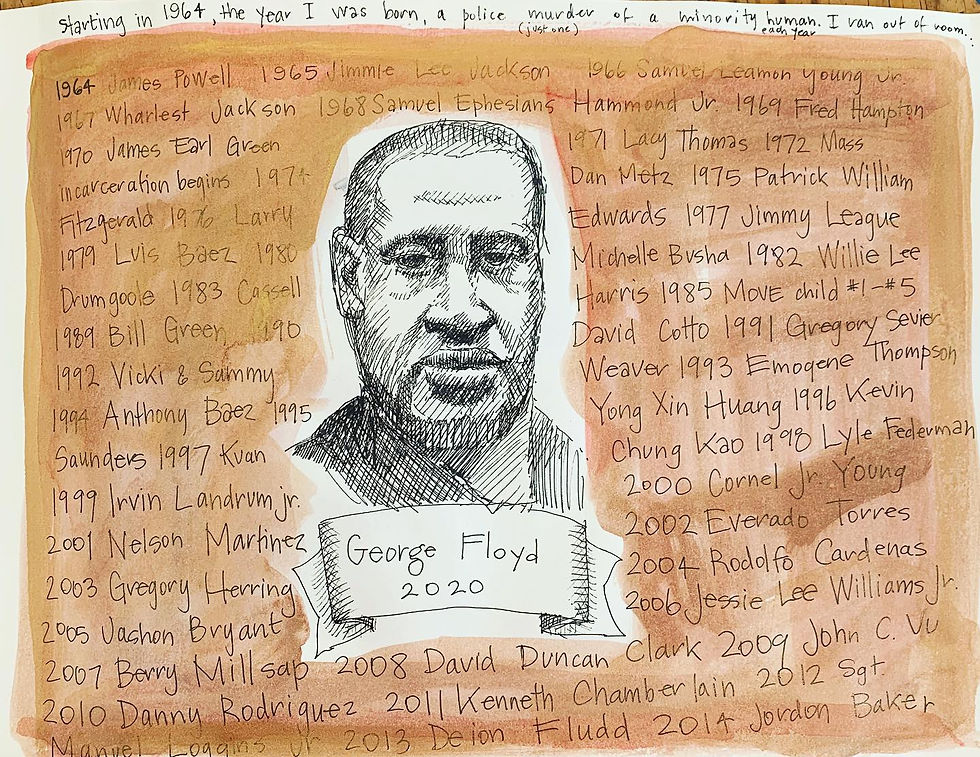 starting in 1964, the year I was born, a police murder of a minority human. I ran out of room.
(just one) each year
1964 James Powell 1965 Jimmie Lee Jackson 1966 Samuel Leamon Young Jr.
1967 Wharlest Jackson 1968 Samuel Ephesians Hammond Jr. 1969 Fred Hampton
1970 James Earl Green 1971 Lacy Thomas 1972 Mass
incarceration begins 1974 Dan Metz 1975 Patrick William
Fitzgerald 1976 Larry Edwards 1977 Jimmy League
1979 Luis Baez 1980 Michelle Busha 1982 Willie Lee
Drumgoole 1983 Cassell Harris 1985 MOVE child #1-#5
1989 Bill Green 190 David Cotto 1991 Gregory Sevier
1992 Vicki & Sammy Weaver 1993 Emogene Thompson
1994 Anthony Baez 1995 Yong Xin Huang 1996 Kevin
Saunders 1997 Kuan Chung Kao 1998 Lyle Federman
1999 Irvin Landrum jr. 2000 Cornel Jr. Young
2001 Nelson Martinez 2002 Everado Torres
George Floyd
2020
2003 Gregory Herring 2004 Rodolfo Cardenas
2005 Vashon Bryant 2006 Jessie Lee Williams Jr.
2007 Berry Millsap 2008 David Duncan Clark 2009 John C. Vu
2010 Danny Rodriguez 2011 Kenneth Chamberlain 2012 Sgt.
Manuel Loggins Jr 2013 Deion Fludd 2014 Jordon Baker